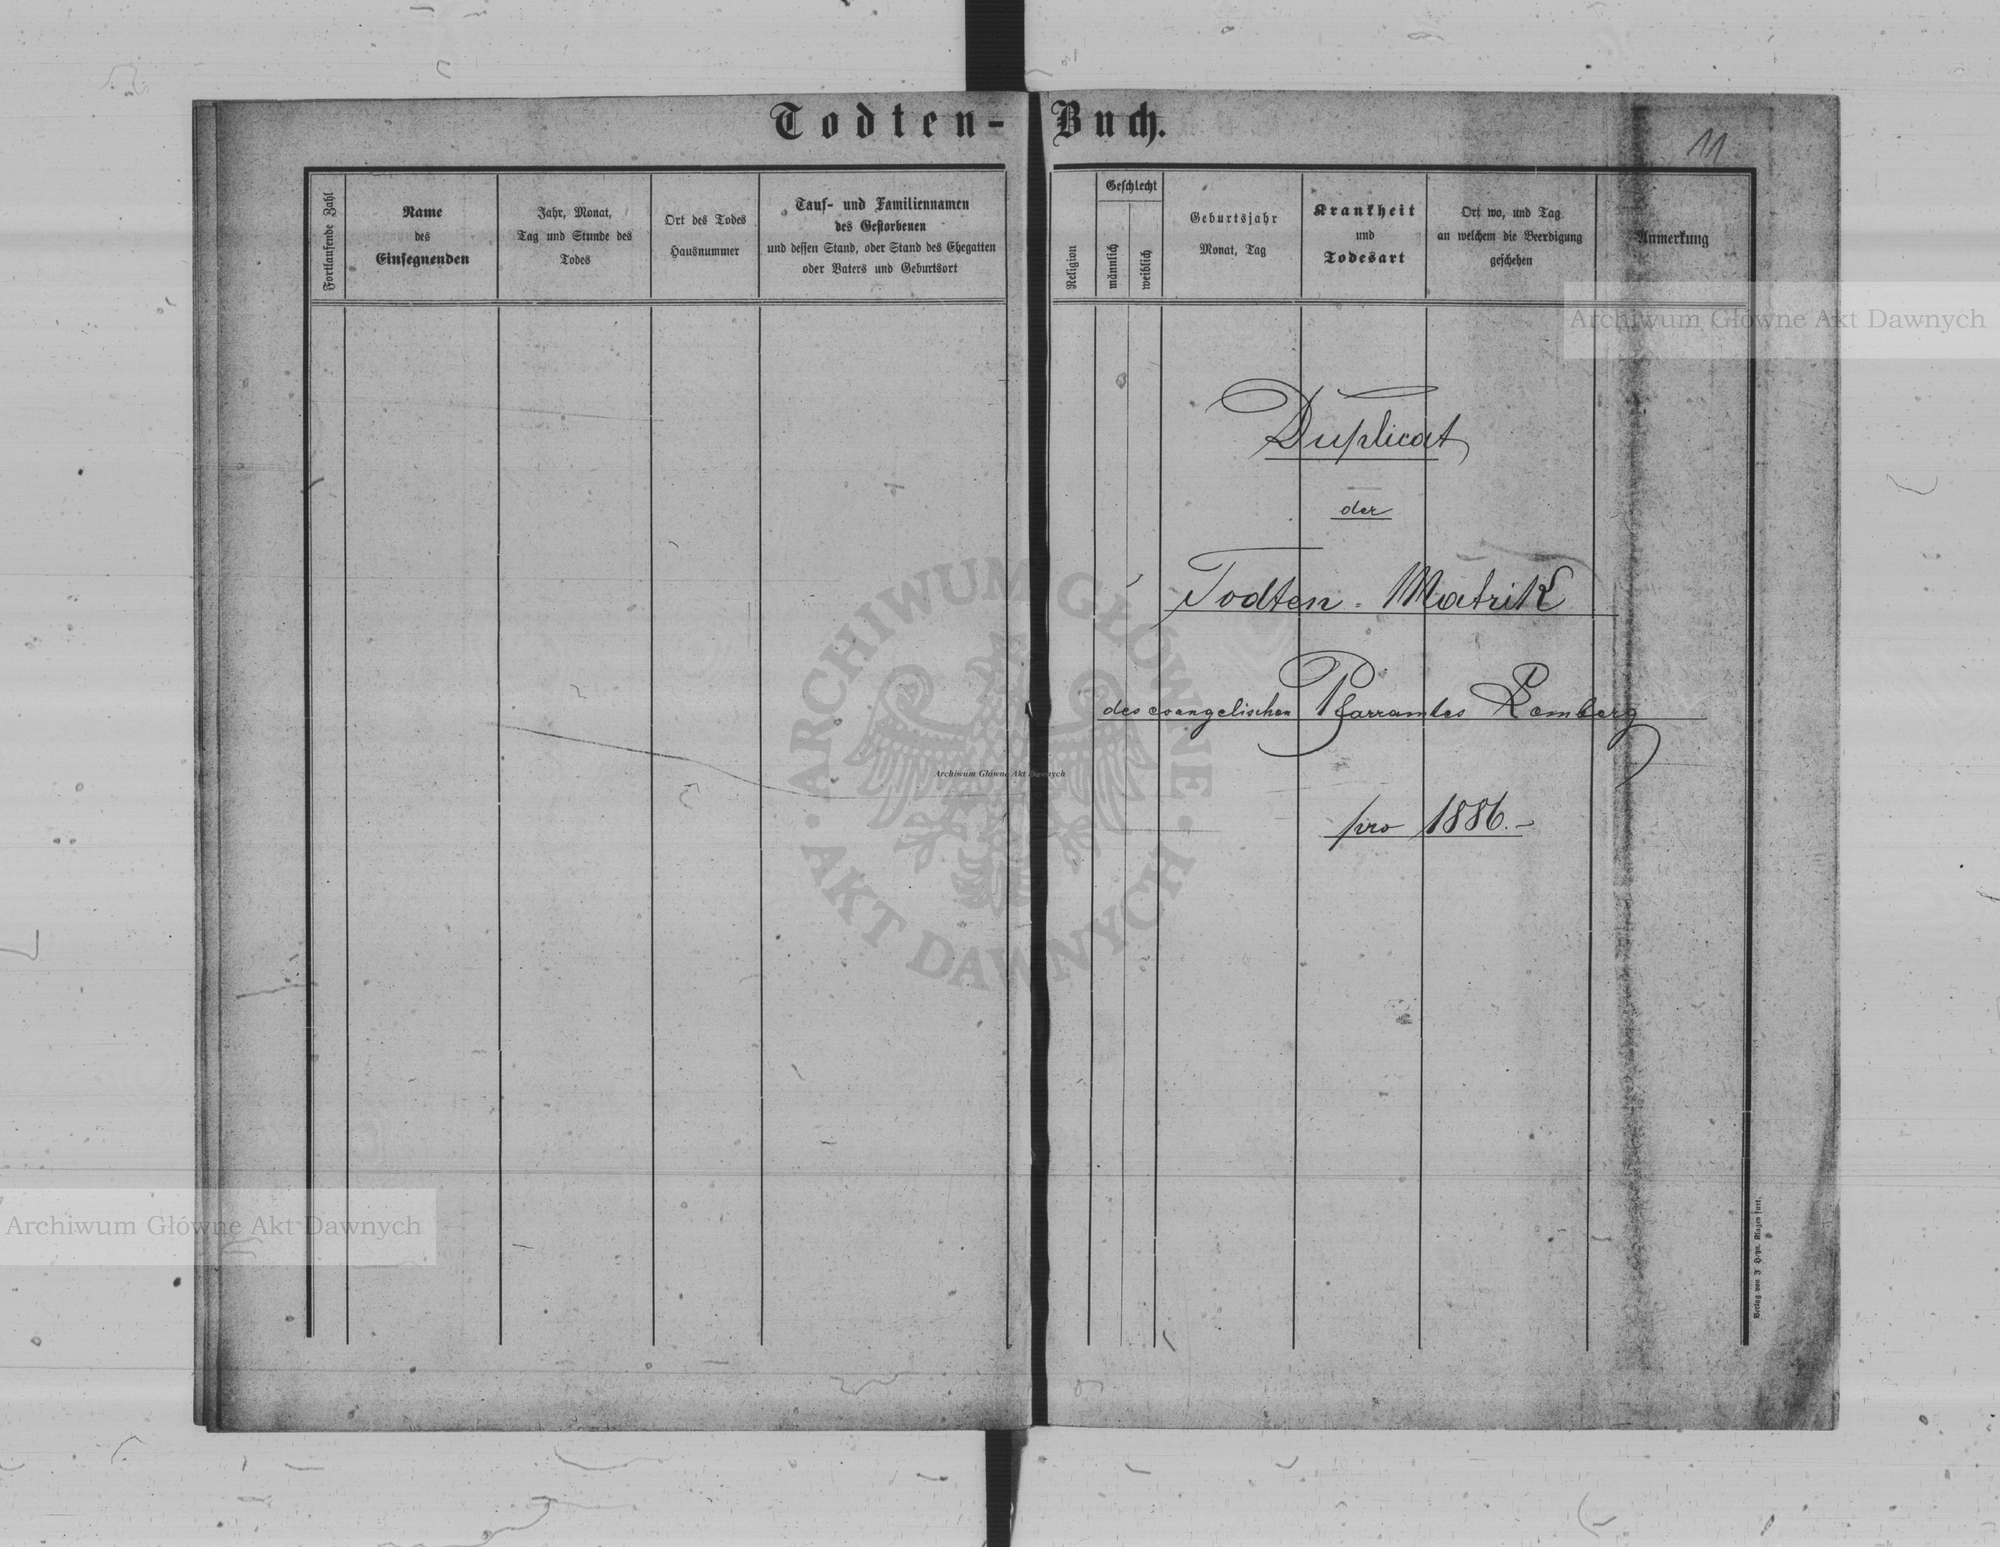 Todten-Buch.
11
Fortlaufende Zahl
Name
des
Einsegnenden
Jahr, Monat,
Tag und Stunde des
Todes
Ort des Todes
Hausnummer
Tauf- und Familiennamen
des Gestorbenen
und dessen Stand, oder Stand des Ehegatten
oder Vaters und Geburtsort
Religion
Geschlecht
männlich
weiblich
Geburtsjahr
Monat, Tag
Krankheit
und
Todesart
Ort wo, und Tag
an welchem die Beerdigung
geschehen
Anmerkung
Archiwum Główne Akt Dawnych
Duplicat
der
Todten-Matrik
des evangelischen Pfarramtes Lemberg
pro 1886.-
ARCHIWUM GŁÓWNE
AKT DAWNYCH
Archiwum Główne Akt Dawnych
Archiwum Główne Akt Dawnych
Verlag von J Klagenfurt.